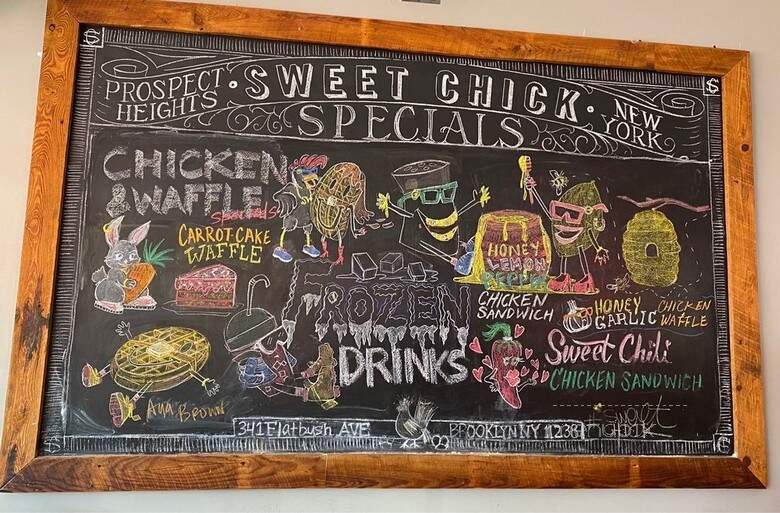 PROSPECT HEIGHTS
· SWEET CHICK ·
NEW YORK
SPECIALS
CHICKEN
& WAFFLE
Specials
CARROT CAKE
WAFFLE
HONEY
LEMON
PEPPER
CHICKEN
SANDWICH
HONEY
GARLIC
CHICKEN
WAFFLE
FROZEN
DRINKS
Sweet Chili
CHICKEN SANDWICH
341 Flatbush AVE
BROOKLYN NY 11238
Sweet